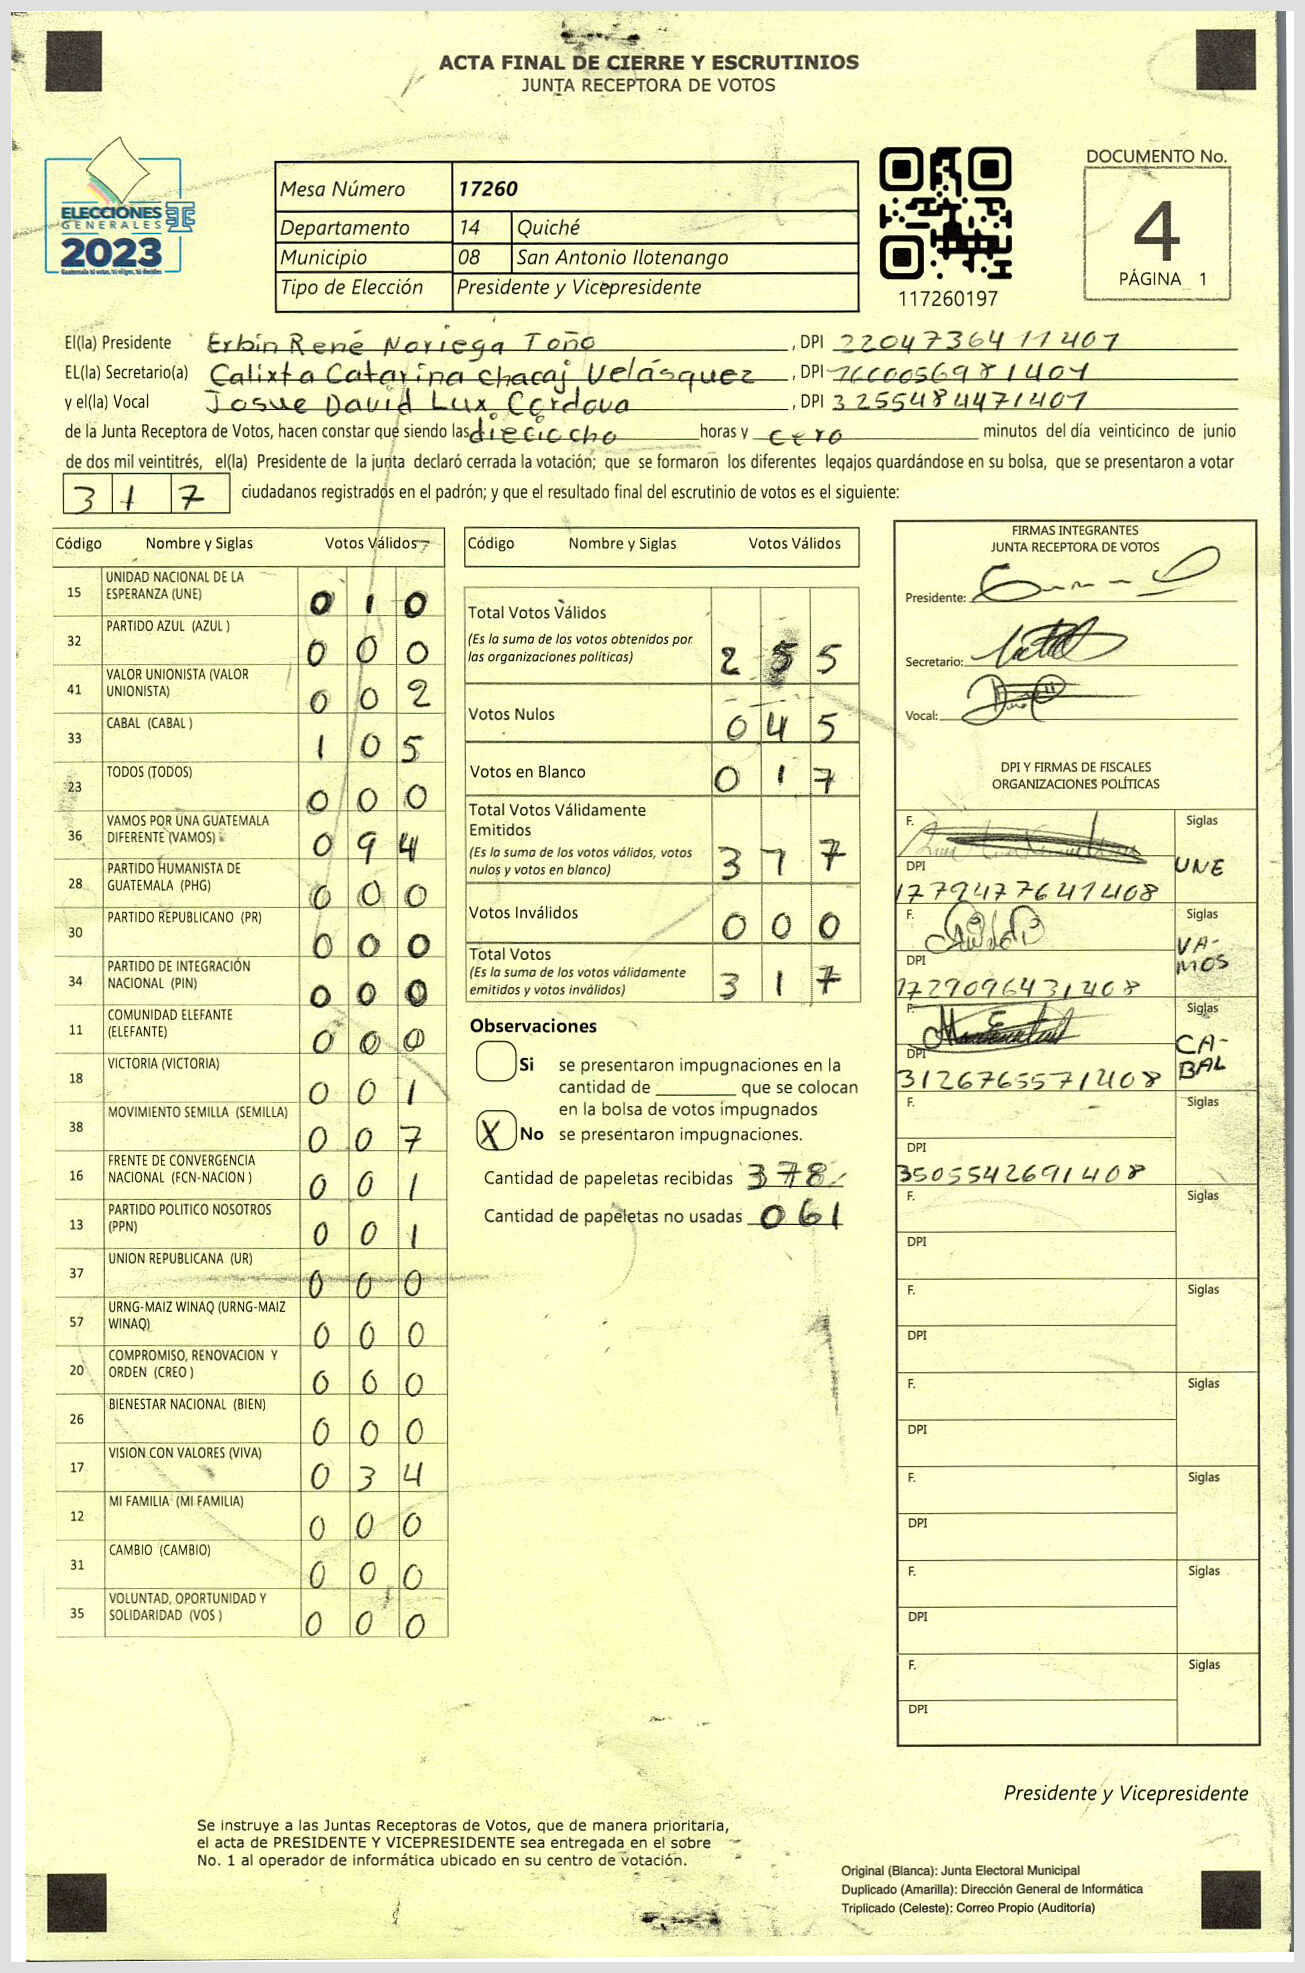 ACTA FINAL DE CIERRE Y ESCRUTINIOS
JUNTA RECEPTORA DE VOTOS
ELECCIONES
GENERALES
2023
Guatemala tú votas, tú eliges, tú decides
Mesa Número 17260
Departamento 14 Quiché
Municipio 08 San Antonio Ilotenango
Tipo de Elección Presidente y Vicepresidente
117260197
DOCUMENTO No.
4
PÁGINA 1
El(la) Presidente Erbin René Noriega Toño, DPI 2204736411401
EL(la) Secretario(a) Calixta Catarina Chacaj Velásquez, DPI 1600056981401
y el(la) Vocal Josue David Lux Cordova, DPI 3255484471401
de la Junta Receptora de Votos, hacen constar que siendo las dieciocho horas y cero minutos del día veinticinco de junio
de dos mil veintitrés, el(la) Presidente de la junta declaró cerrada la votación; que se formaron los diferentes legajos guardándose en su bolsa, que se presentaron a votar
317 ciudadanos registrados en el padrón; y que el resultado final del escrutinio de votos es el siguiente:
Código Nombre y Siglas Votos Válidos
15 UNIDAD NACIONAL DE LA ESPERANZA (UNE) 0 1 0
32 PARTIDO AZUL (AZUL ) 0 0 0
41 VALOR UNIONISTA (VALOR UNIONISTA) 0 0 2
33 CABAL (CABAL ) 1 0 5
23 TODOS (TODOS) 0 0 0
36 VAMOS POR UNA GUATEMALA DIFERENTE (VAMOS) 0 9 4
28 PARTIDO HUMANISTA DE GUATEMALA (PHG) 0 0 0
30 PARTIDO REPUBLICANO (PR) 0 0 0
34 PARTIDO DE INTEGRACIÓN NACIONAL (PIN) 0 0 0
11 COMUNIDAD ELEFANTE (ELEFANTE) 0 0 0
18 VICTORIA (VICTORIA) 0 0 1
38 MOVIMIENTO SEMILLA (SEMILLA) 0 0 7
16 FRENTE DE CONVERGENCIA NACIONAL (FCN-NACION ) 0 0 1
13 PARTIDO POLITICO NOSOTROS (PPN) 0 0 1
37 UNION REPUBLICANA (UR) 0 0 0
57 URNG-MAIZ WINAQ (URNG-MAIZ WINAQ) 0 0 0
20 COMPROMISO, RENOVACION Y ORDEN (CREO ) 0 0 0
26 BIENESTAR NACIONAL (BIEN) 0 0 0
17 VISION CON VALORES (VIVA) 0 3 4
12 MI FAMILIA (MI FAMILIA) 0 0 0
31 CAMBIO (CAMBIO) 0 0 0
35 VOLUNTAD, OPORTUNIDAD Y SOLIDARIDAD (VOS ) 0 0 0
Código Nombre y Siglas Votos Válidos
Total Votos Válidos
(Es la suma de los votos obtenidos por
las organizaciones políticas) 2 5 5
Votos Nulos 0 4 5
Votos en Blanco 0 1 7
Total Votos Válidamente
Emitidos
(Es la suma de los votos válidos, votos
nulos y votos en blanco) 3 1 7
Votos Inválidos 0 0 0
Total Votos
(Es la suma de los votos válidamente
emitidos y votos inválidos) 3 1 7
Observaciones
Si se presentaron impugnaciones en la
cantidad de ________ que se colocan
en la bolsa de votos impugnados
X No se presentaron impugnaciones.
Cantidad de papeletas recibidas 378
Cantidad de papeletas no usadas 061
FIRMAS INTEGRANTES
JUNTA RECEPTORA DE VOTOS
Presidente:
Secretario:
Vocal:
DPI Y FIRMAS DE FISCALES
ORGANIZACIONES POLÍTICAS
F. Siglas
UNE
DPI
1779477641408
F. Siglas
VA-
MOS
DPI
1729096431408
F. Siglas
CA-
BAL
DPI
3126765571408
F. Siglas
DPI
3505542691408
F. Siglas
DPI
F. Siglas
DPI
F. Siglas
DPI
F. Siglas
DPI
F. Siglas
DPI
F. Siglas
DPI
Presidente y Vicepresidente
Se instruye a las Juntas Receptoras de Votos, que de manera prioritaria,
el acta de PRESIDENTE Y VICEPRESIDENTE sea entregada en el sobre
No. 1 al operador de informática ubicado en su centro de votación.
Original (Blanca): Junta Electoral Municipal
Duplicado (Amarilla): Dirección General de Informática
Triplicado (Celeste): Correo Propio (Auditoría)